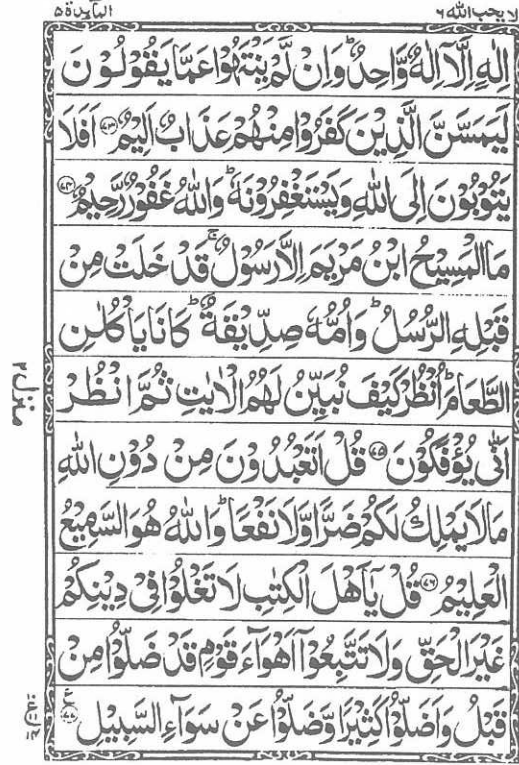 لا یحب الله ٦
المآىِٕدة ۵
اِلٰهٍ اِلَّاۤ اِلٰهٌ وَّاحِدٌ ؕ وَاِنْ لَّمْ یَنْتَهُوْا عَمَّا یَقُوْلُوْنَ
لَیَمَسَّنَّ الَّذِیْنَ كَفَرُوْا مِنْهُمْ عَذَابٌ اَلِیْمٌ ﴿۷۳﴾ اَفَلَا
یَتُوْبُوْنَ اِلَی اللهِ وَیَسْتَغْفِرُوْنَهٗ ؕ وَاللهُ غَفُوْرٌ رَّحِیْمٌ ﴿۷۴﴾
مَا الْمَسِیْحُ ابْنُ مَرْیَمَ اِلَّا رَسُوْلٌ ۚ قَدْ خَلَتْ مِنْ
قَبْلِهِ الرُّسُلُ ؕ وَاُمُّهٗ صِدِّیْقَةٌ ؕ كَانَا یَاْكُلٰنِ
الطَّعَامَ ؕ اُنْظُرْ كَیْفَ نُبَیِّنُ لَهُمُ الْاٰیٰتِ ثُمَّ انْظُرْ
اَنّٰی یُؤْفَكُوْنَ ﴿۷۵﴾ قُلْ اَتَعْبُدُوْنَ مِنْ دُوْنِ اللهِ
مَا لَا یَمْلِكُ لَكُمْ ضَرًّا وَّلَا نَفْعًا ؕ وَاللهُ هُوَ السَّمِیْعُ
الْعَلِیْمُ ﴿۷۶﴾ قُلْ یٰۤاَهْلَ الْكِتٰبِ لَا تَغْلُوْا فِیْ دِیْنِكُمْ
غَیْرَ الْحَقِّ وَلَا تَتَّبِعُوْۤا اَهْوَآءَ قَوْمٍ قَدْ ضَلُّوْا مِنْ
قَبْلُ وَاَضَلُّوْا كَثِیْرًا وَّضَلُّوْا عَنْ سَوَآءِ السَّبِیْلِ ﴿۷۷﴾ ع
منزل ۲